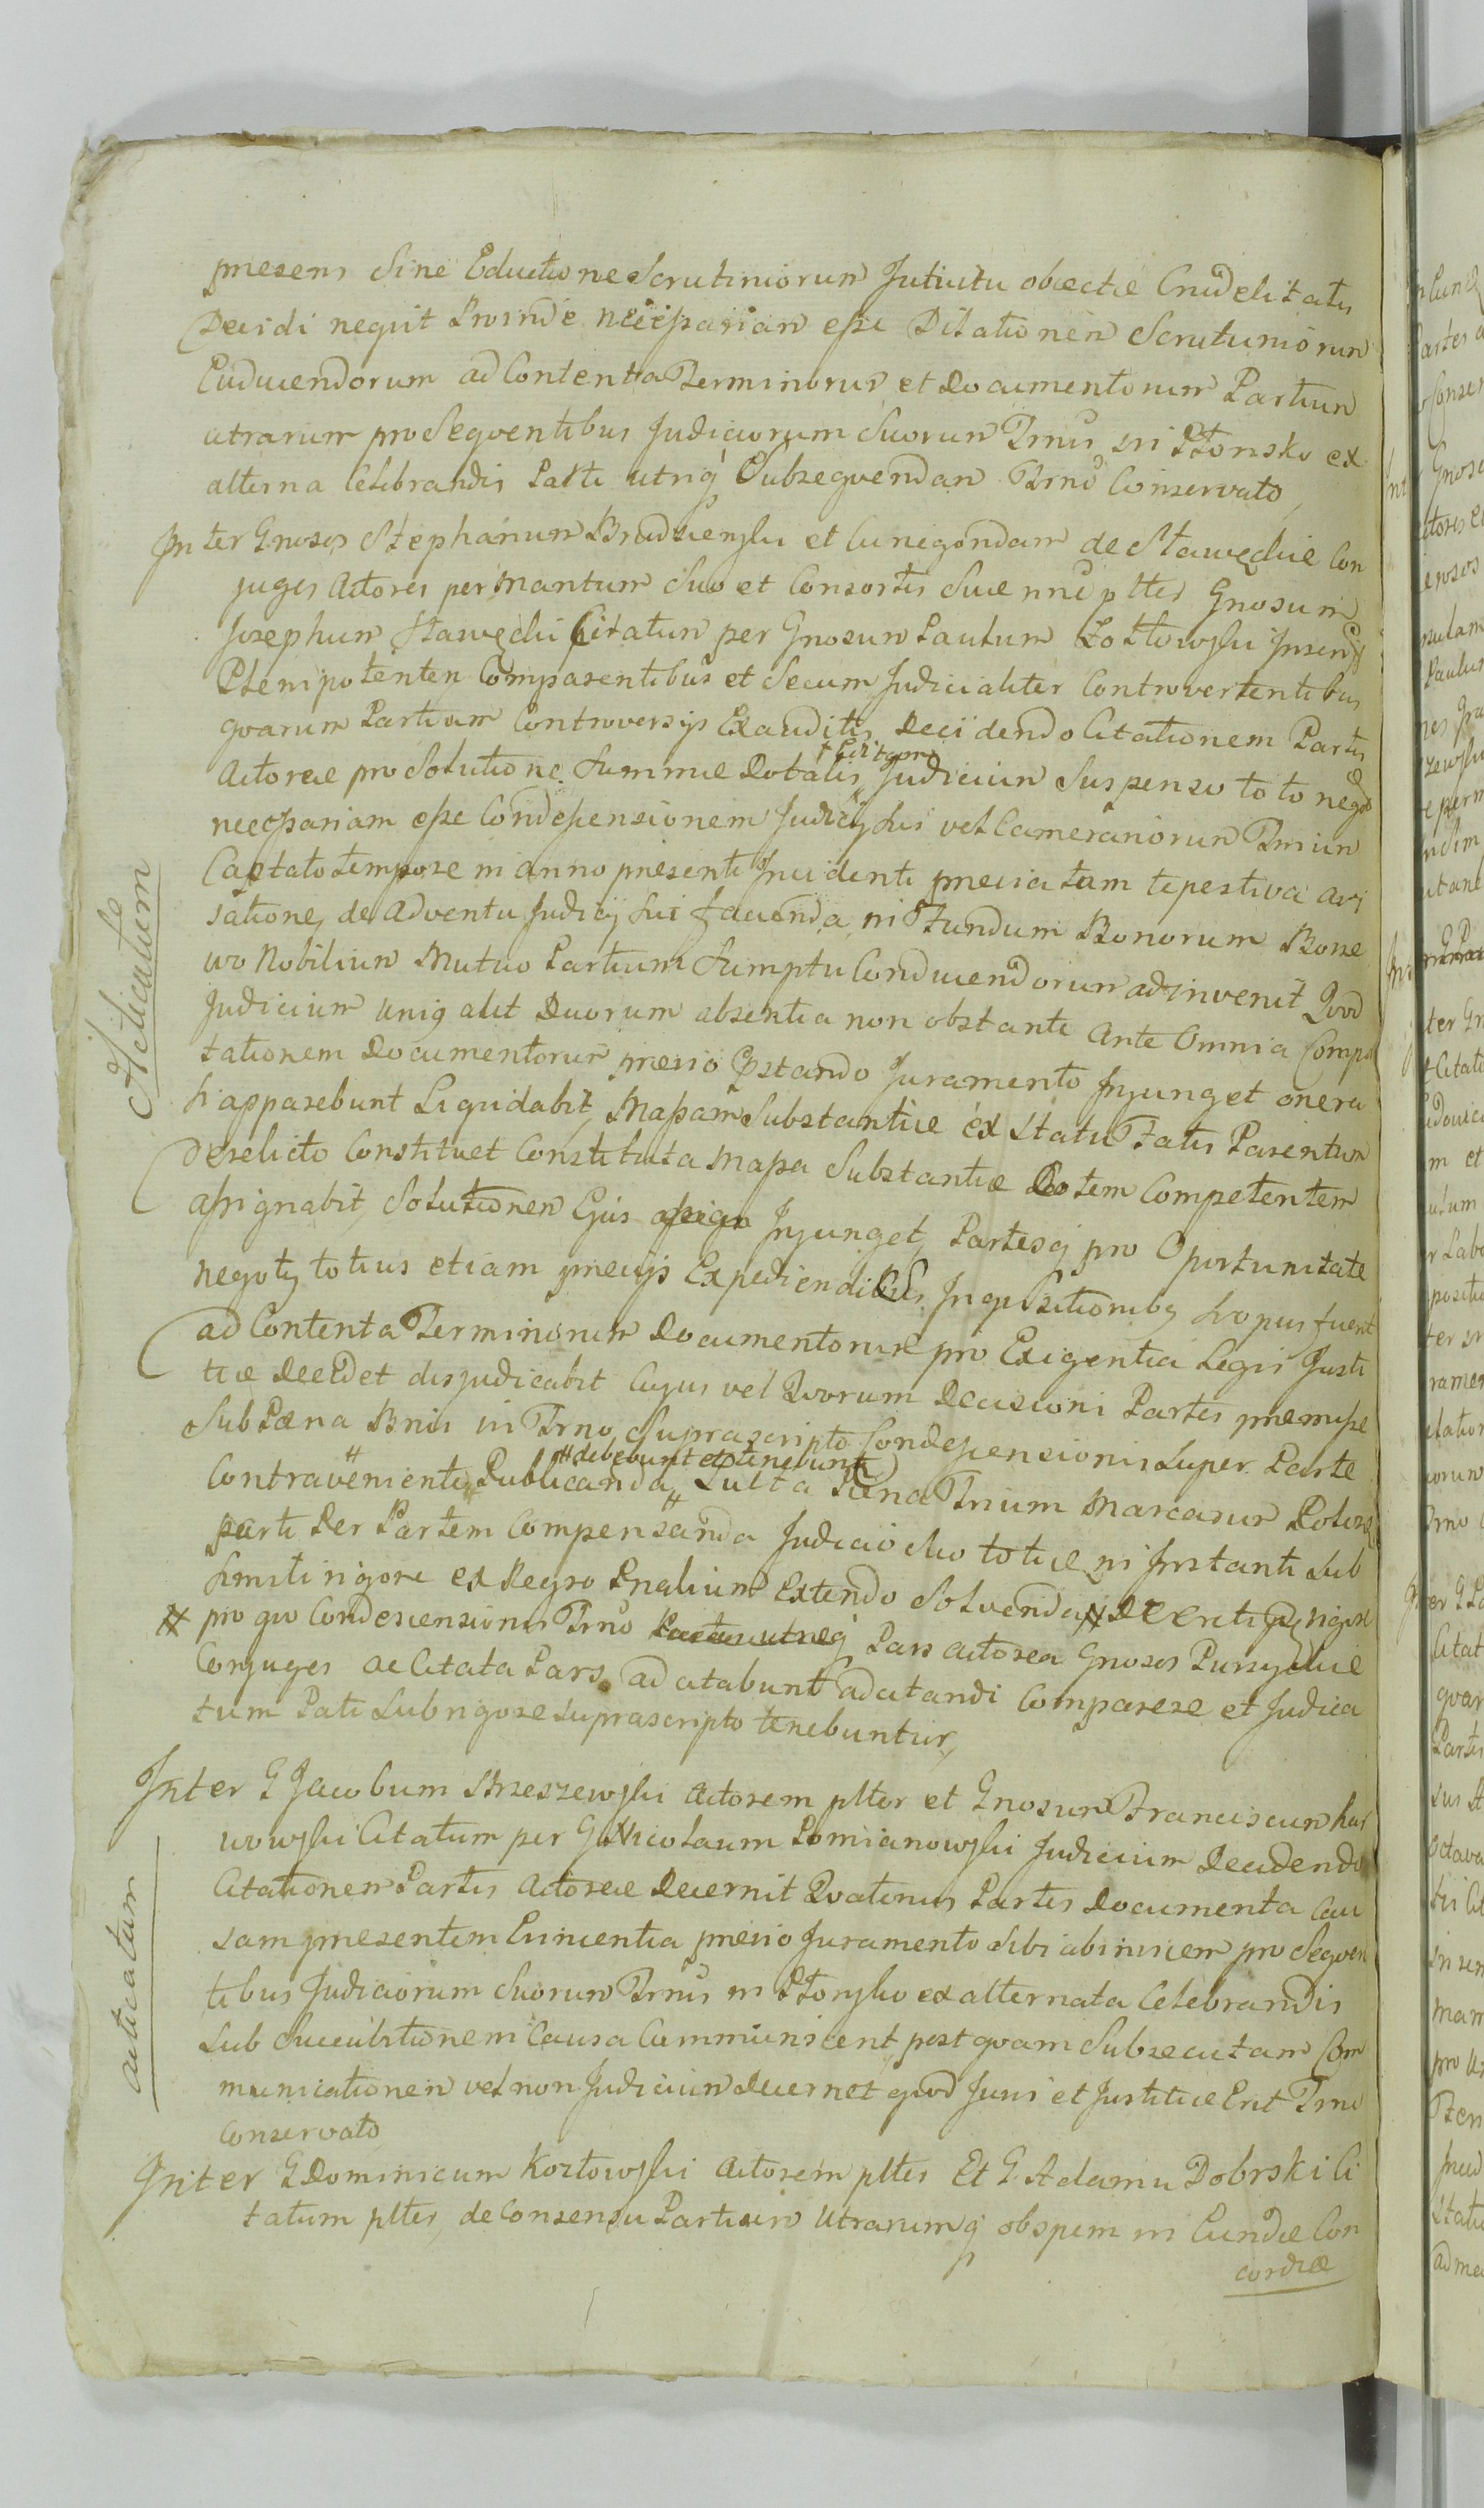 præsens Sine Eductione Scrutiniorum Intuitu obiectæ Crudelitatis
Decidi nequit Proinde necessariam esse Dilationem Scrutiniorum
Educendorum ad Contenta Terminorum et Documentorum Partium
utrarum pro Seqventibus Judiciorum Suorum Trnis in Płonsko ex
alterna Celebrandis Parti utriq Subseqvendam Trno Conservato
Inter Gnosos Stephanum Brudzienski et Cunegondam de Stawęckie Con
juges Actores per Maritum Suo et Consortis Suæ nne pltes Gnosum
Josephum Stawęcki Citatum per Gnosum Paulum Zołtowski
Plenipotentem Comparentibus et Secum Judicialiter Controvertentibus
qvarum Partium Controversÿs Exauditis Decidendo Citationem Partis
Actoreæ pro Solutione Summæ Dotalis Judicium Suspenso toto negο
necessariam esse Condescensionem Judicÿ Sui vel Camerariorum Trium
Captato tempore in anno præsenti Incidenti præcia tam tepestiva avi
satione, de adventu Judicÿ Sui facienda in Fundum Bonorum Bosse
wo Nobilium Mutuo Partium Sumptu Conducendorum adinvenit Qvod
Judicium uniq alit Duorum absentia non obstante Ante Omnia Compor
tationem Documentorum prævio Pstando Juramento Injunget onera
si apparebunt Liqvidabit, Massam Substantiæ ex Statu Fatis Parentum
Derelicto Constituet Constituta Massa Substantiæ Dotem Competentem
assignabit, Solutionem Ejus Injunget, Partesq pro Oportunitate
negotÿ totius etiam præviis Expediendibus Inqvisitionibq si opus fuerit
ad Contenta Terminorum Documentorum pro Exigentia Legis Justi
tiæ Decidet disjudicabit Cujus vel Qvorum Decisioni Partes præmissæ
Sub Pæna Bnis in Trno Suprascripto Condescensionis Super Parte
# debebunt et tenebunt
Contraveniente Publicanda Luita Pæna Trium Marcarum Polon
parti Per Partem Compensanda Judicio Suo totiæ in Instanti Sub
Simili rigore ex Regro Pnalium Extendo Solvenda # Decreti rigore
# pro qvo Condescensionis Trno Pars Actorea Gnosos
Conjuges ac Citata Pars ad citabunt adcitandi Comparere et Judica
tum Pati Sub rigore Suprascripto tenebuntur,
Inter G Jacobum Brzeszewski Actorem plter et Gnosum Franciscum Kar
wowski Citatum per G Nicolaum Pomianowski Judicium Decidendo
Citationem Partis Actoreæ Decernit Qvatenus Partes Documenta Cau
sam præsentem Evincentia prævio Juramento Sibi abinvicem pro Seqven
tibus Judiciorum Suorum Trnis in Płonsko ex alternata Celebrandis
Sub Succubitionem Causa Communicent post qvam Subsecutam Com
municationem vel non Judicium Decernet qvod Juris et Justitiæ Erit Trno
Conservato
Inter G Dominicum Kozłowski Actorem pltes Et G Adamu Dobrski Ci
tatum pltes, de Consensu Partium Utrarumq ob spem in Eundæ Con
cordiæ
Articulatum
articatum